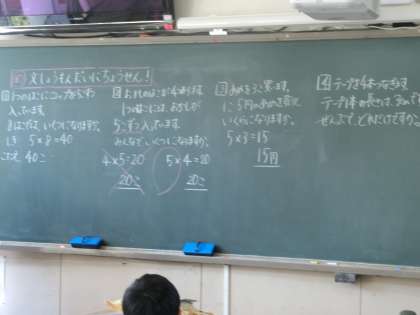 文しょうもんだいにちょうせん!
1 1つのはこに
入っています。
8はこでは、いくつになりますか。
しき 5×8=40
こたえ 40こ
2 おかしのはこが4はこあります。
1つのはこには、おかしが
5こずつ入っています。
みんなでいくつになりますか。
4×5=20
20こ
5×4=20
20こ
3 あめを3こ買います。
1こ5円のあめを買うと
いくらになりますか。
5×3=15
15円
4 テープを4本つなぎます
テープ1本の長さは、
ぜんぶで、どれだけですか。